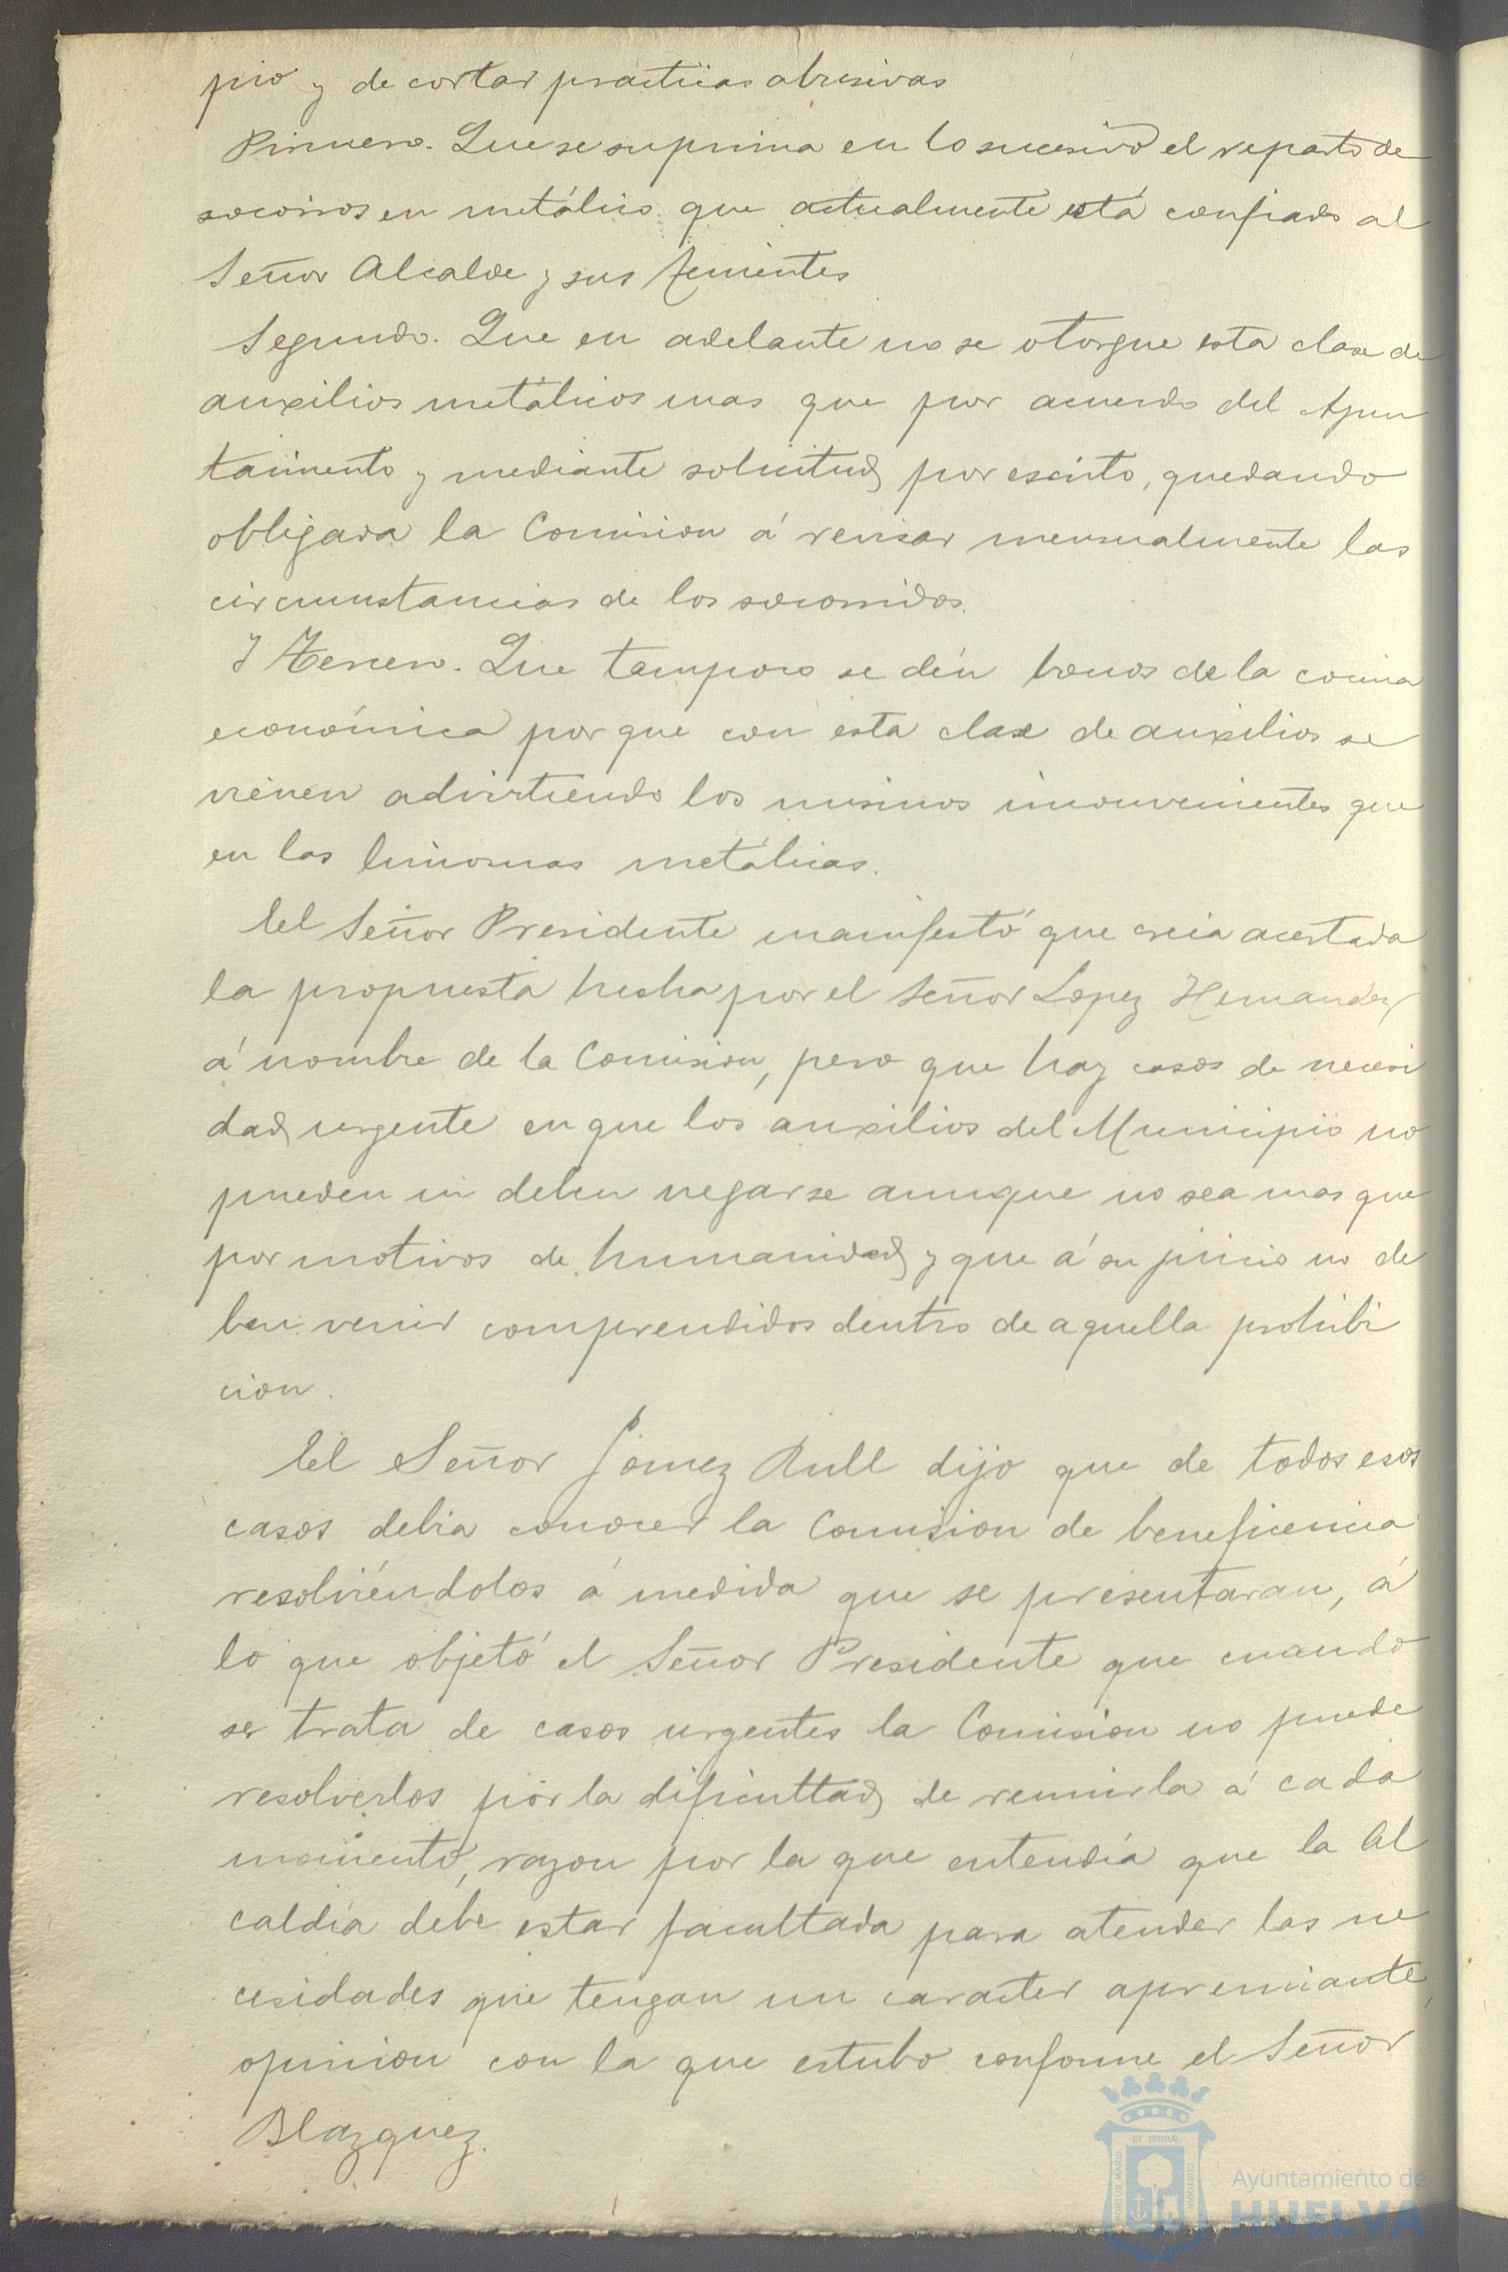 pio y de cortar practicas abusivas
Primero. Que se suprima en lo sucesivo el reparto de
socorros en metálico que actualmente está confiado al
Señor Alcalde y sus Tenientes
Segundo. Que en adelante no se otorgue esta clase de
auxilios metálicos mas que por acuerdo del Ayun
tamiento y mediante solicitud por escrito, quedando
obligada la Comision á revisar mensualmente las
circunstancias de los socorridos.
Y Tercero. Que tampoco se dén bonos de la cocina
económica por que con esta clase de auxilios se
vienen advirtiendo los mismos inconvenientes que
en las limosnas metálicas.
El Señor Presidente manifestó que creia acertada
la propuesta hecha por el Señor Lopez Hernandez
á nombre de la Comision, pero que hay casos de necesi
dad urgente en que los auxilios del Municipio no
pueden ni deben negarse aunque no sea mas que
por motivos de humanidad y que á su juicio no de
ben venir comprendidos dentro de aquella prohibi
cion.
El Señor Gomez Rull dijo que de todos esos
casos debia conocer la Comision de beneficencia
resolviéndolos á medida que se presentaran, á
lo que objetó el Señor Presidente que cuando
se trata de casos urgentes la Comision no puede
resolverlos por la dificultad de reunirla á cada
momento, razon por la que entendía que la Al
caldía debe estar facultada para atender las ne
cesidades que tengan un caracter apremiante,
opinion con la que estubo conforme el Señor
Blazquez.
Ayuntamiento de
HUELVA